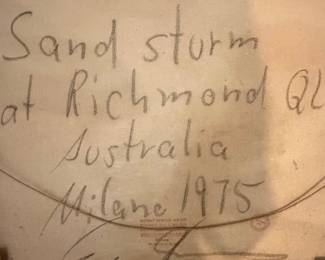 Sand sturm
at Richmond QL
Australia
Milano 1975